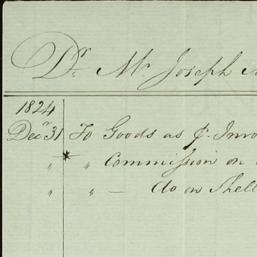 Dr. Mr Joseph
1824
Decr 31 To Goods as pr Invo
" * " Commission on
" " — do on Shell